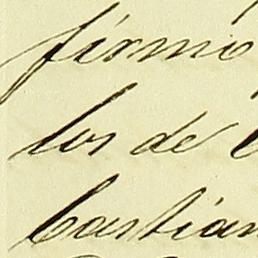 firmó
los de
bastian